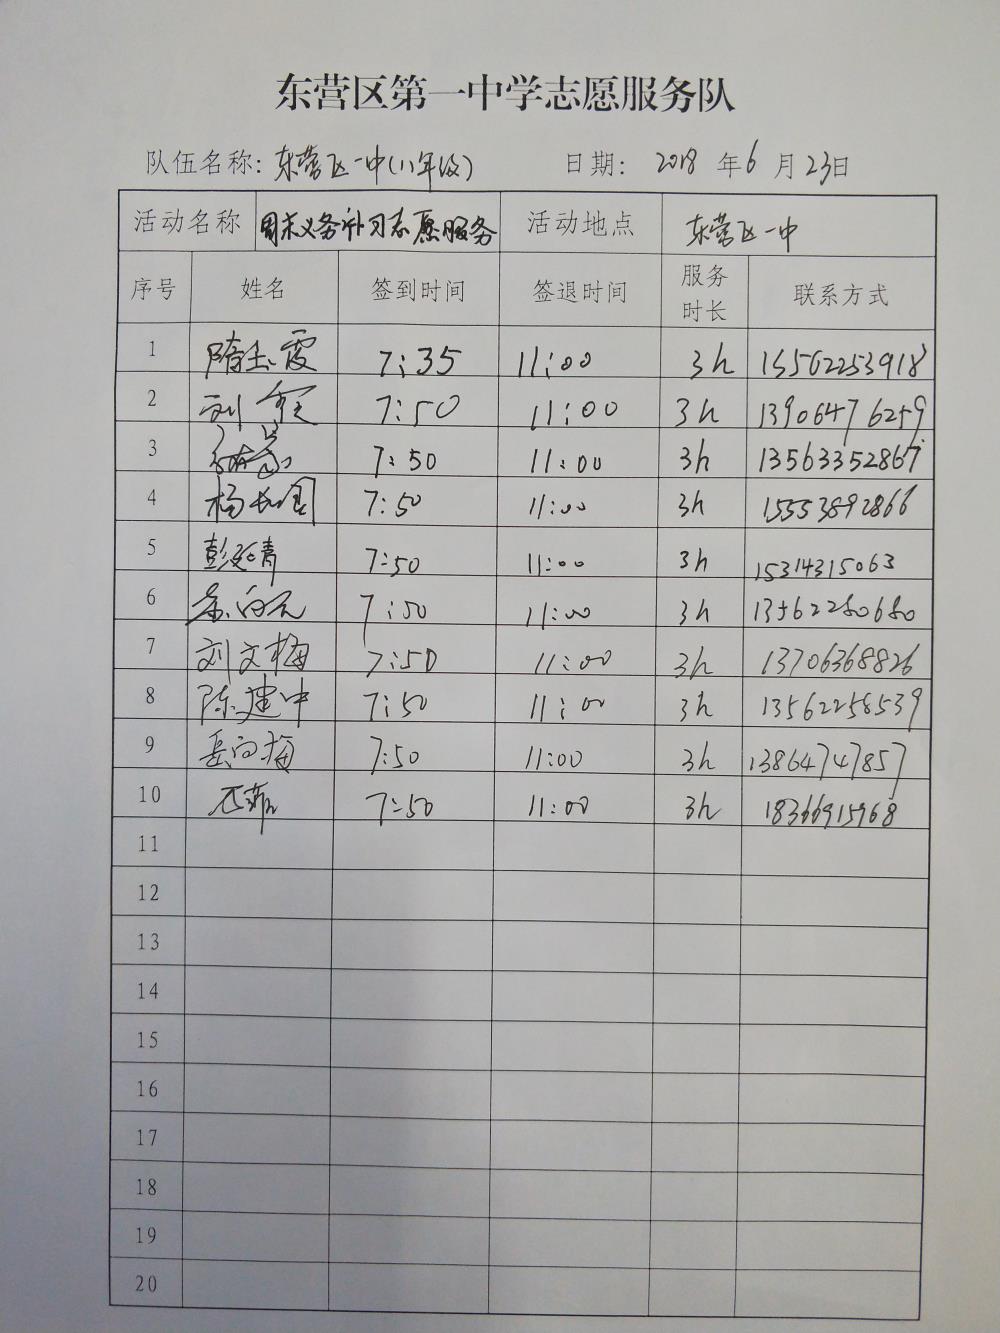 东营区第一中学志愿服务队
队伍名称: 东营区一中(八年级) 日期: 2018 年 6 月 23 日
活动名称 周末义务补习志愿服务 活动地点 东营区一中
序号 姓名 签到时间 签退时间 服务时长 联系方式
1 隋玉霞 7:35 11:00 3h 15562253918
2 刘 7:50 11:00 3h 13906476259
3 7:50 11:00 3h 13563352867
4 杨 7:50 11:00 3h 15553892866
5 彭延青 7:50 11:00 3h 15314315063
6 7:50 11:00 3h 13562280680
7 刘文梅 7:50 11:00 3h 13706368826
8 陈建中 7:50 11:00 3h 13562258539
9 岳向梅 7:50 11:00 3h 13864747857
10 7:50 11:00 3h 18366915968
11
12
13
14
15
16
17
18
19
20